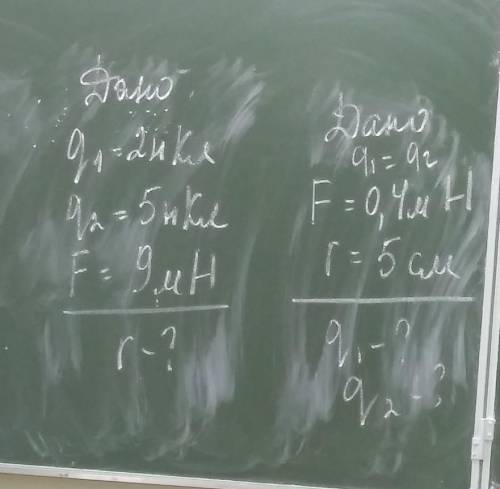 Дано
q₁ = 2нКл
q₂ = 5нКл
F = 9мН
r - ?
Дано
q₁ = q₂
F = 0,4мН
r = 5см
q₁ - ?
q₂ - ?